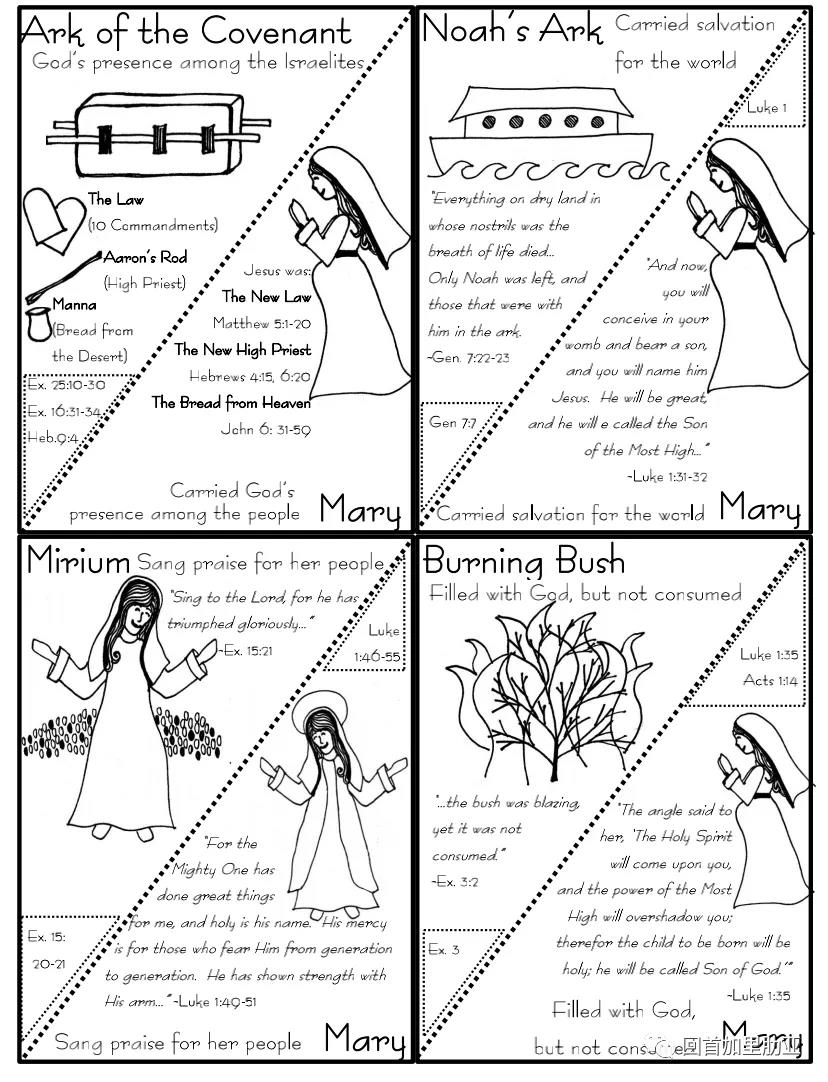 Ark of the Covenant
God's presence among the Israelites
The Law
(10 Commandments)
Aaron's Rod
(High Priest)
Manna
(Bread from
the Desert)
Ex. 25:10-30
Ex. 16:31-34
Heb.9:4
Jesus was:
The New Law
Matthew 5:1-20
The New High Priest
Hebrews 4:15, 6:20
The Bread from Heaven
John 6: 31-59
Carried God's
presence among the people
Mary
Noah's Ark
Carried salvation
for the world
Luke 1
"Everything on dry land in
whose nostrils was the
breath of life died...
Only Noah was left, and
those that were with
him in the ark.
~Gen. 7:22-23
Gen 7:7
"And now,
you will
conceive in your
womb and bear a son,
and you will name him
Jesus. He will be great,
and he will e called the Son
of the Most High..."
~Luke 1:31-32
Carried salvation for the world
Mary
Mirium
Sang praise for her people
"Sing to the Lord, for he has
triumphed gloriously..."
~Ex. 15:21
Luke
1:46-55
"For the
Mighty One has
done great things
for me, and holy is his name. His mercy
is for those who fear Him from generation
to generation. He has shown strength with
His arm..." ~Luke 1:49-51
Ex. 15:
20-21
Sang praise for her people
Mary
Burning Bush
Filled with God, but not consumed
Luke 1:35
Acts 1:14
"...the bush was blazing,
yet it was not
consumed."
~Ex. 3:2
Ex. 3
"The angle said to
her, 'The Holy Spirit
will come upon you,
and the power of the Most
High will overshadow you;
therefor the child to be born will be
holy; he will be called Son of God.'"
~Luke 1:35
Filled with God,
but not consumed
Mary
圆首加里肋亚